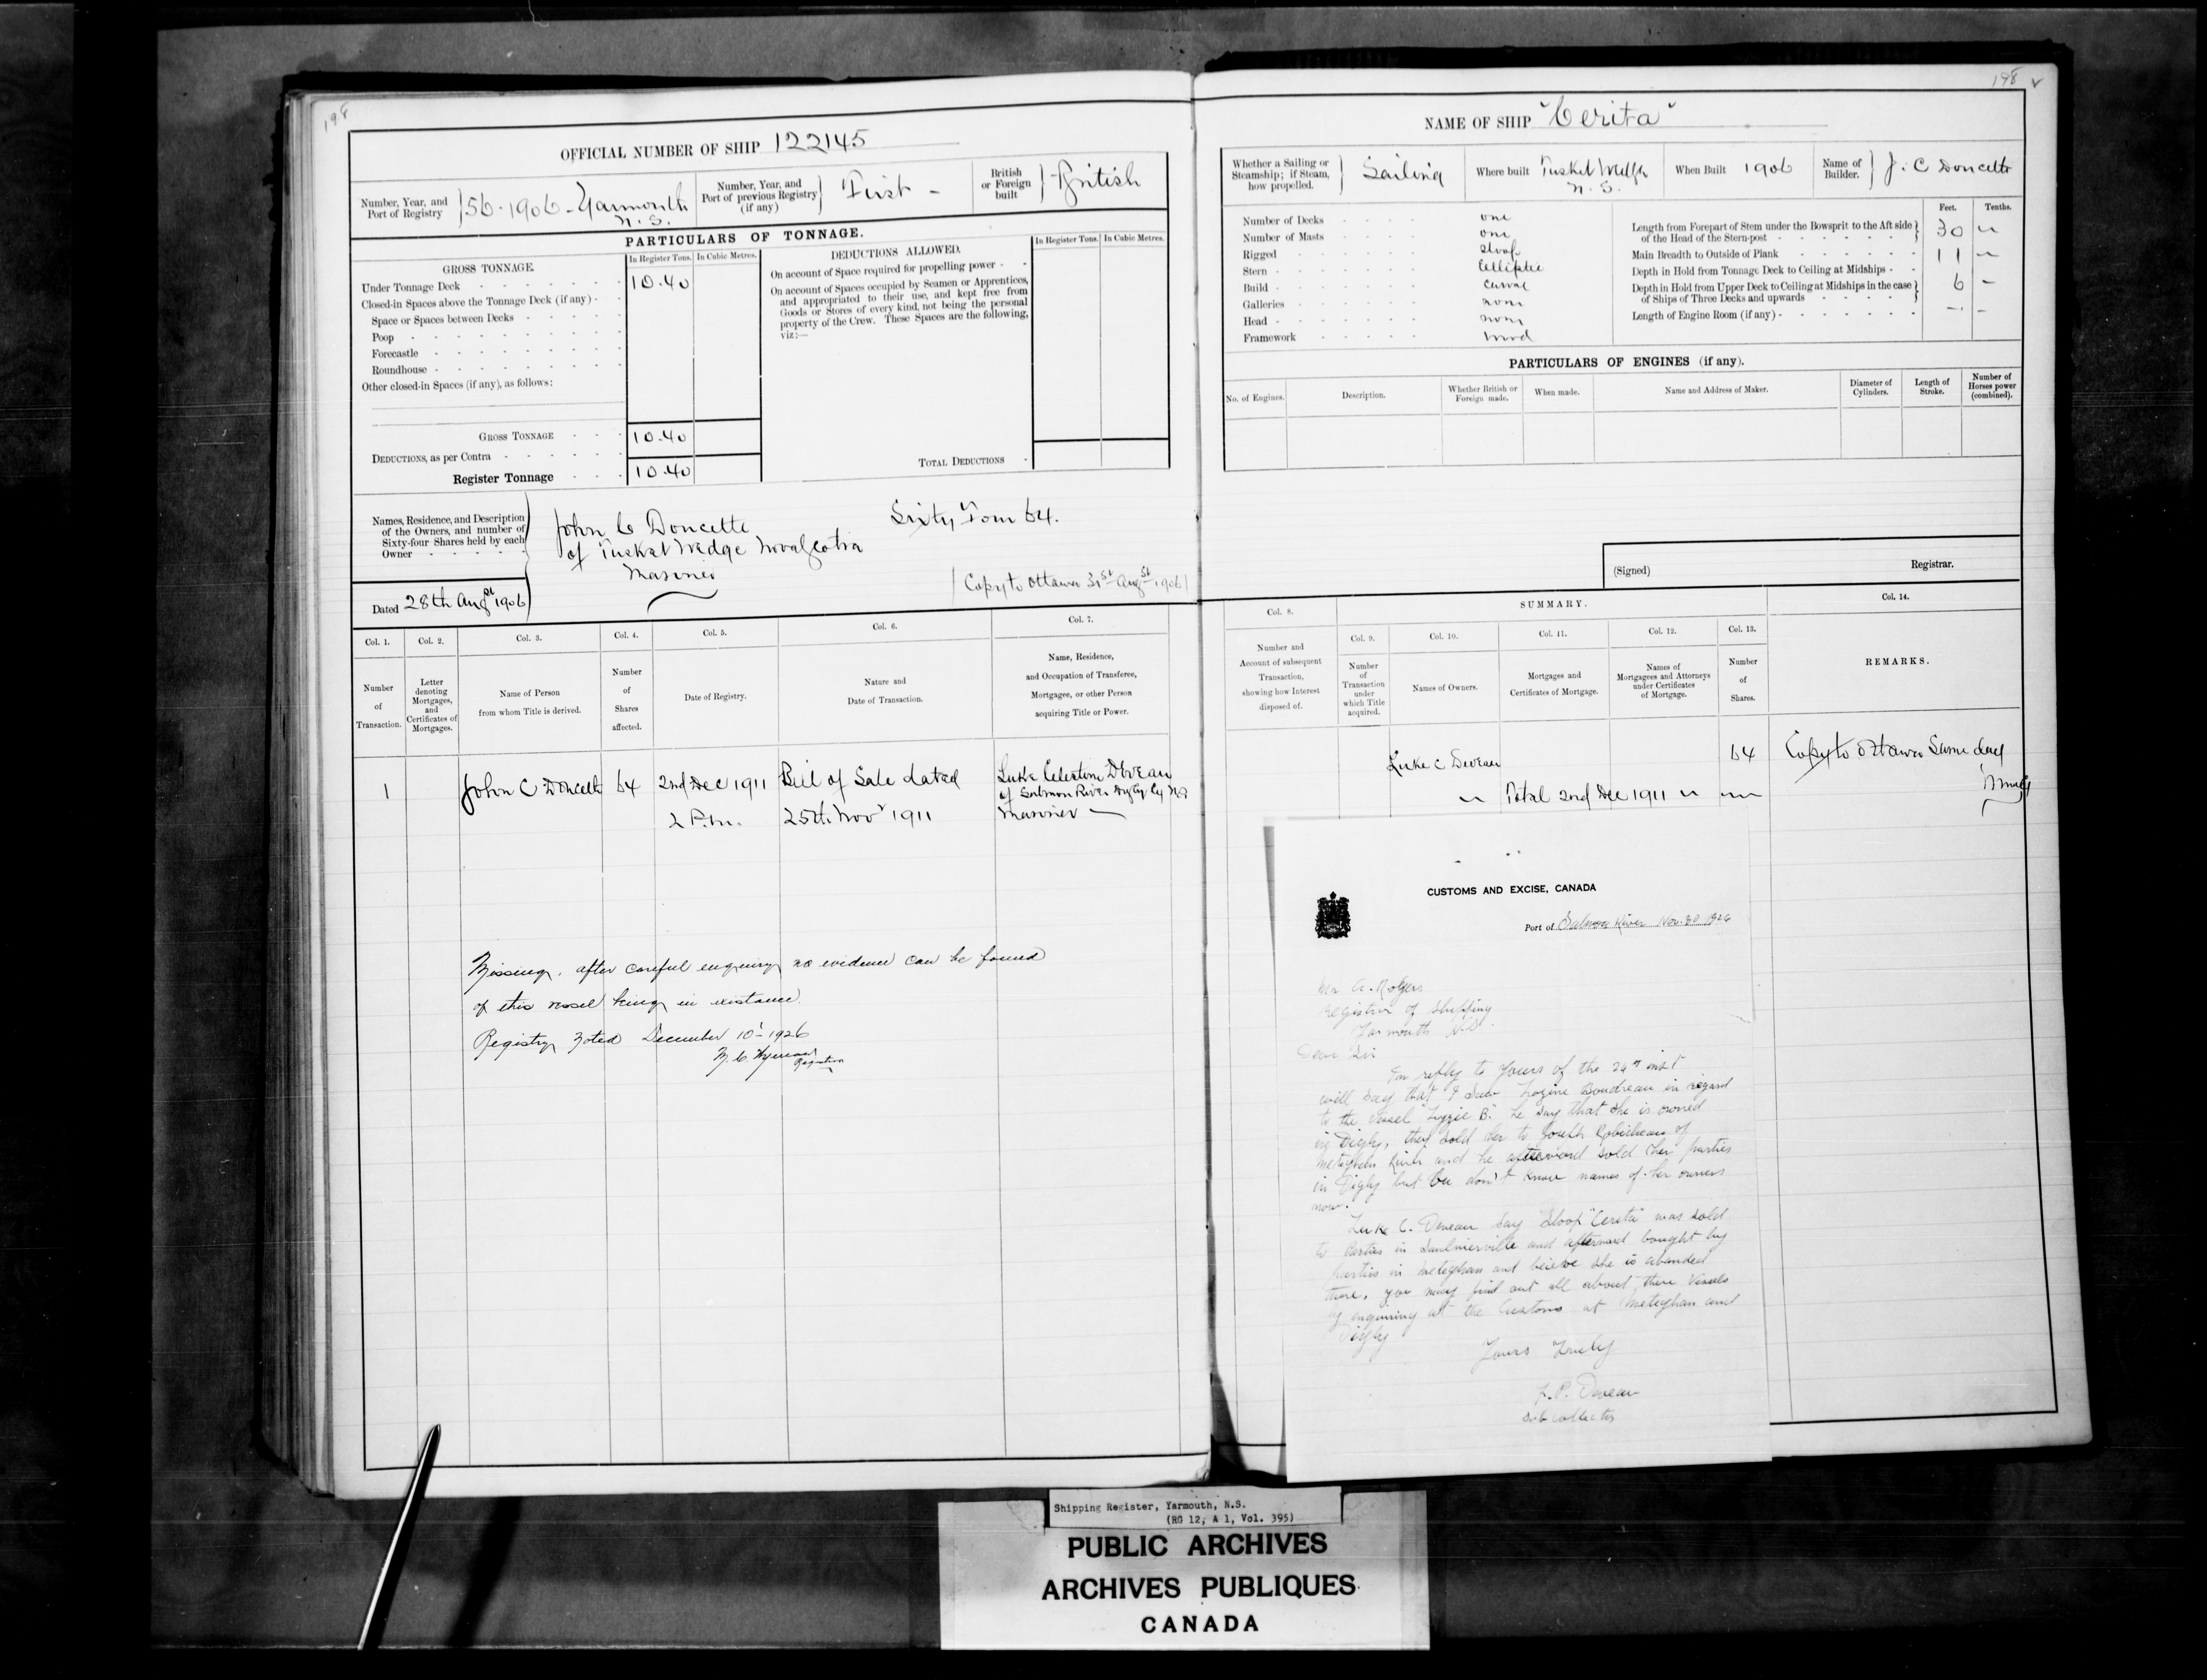 198
OFFICIAL NUMBER OF SHIP 122145
Number, Year, and Port of Registry
56-1906-Yarmouth
N.S.
Number, Year, and Port of previous Registry (if any)
First -
British or Foreign built
British
PARTICULARS OF TONNAGE.
GROSS TONNAGE.
In Register Tons.
In Cubic Metres.
Under Tonnage Deck
10.40
Closed-in Spaces above the Tonnage Deck (if any) -
Space or Spaces between Decks
Poop
Forecastle
Roundhouse
Other closed-in Spaces (if any), as follows:
GROSS TONNAGE
10.40
DEDUCTIONS, as per Contra
Register Tonnage
10.40
DEDUCTIONS ALLOWED.
In Register Tons.
In Cubic Metres.
On account of Space required for propelling power -
On account of Spaces occupied by Seamen or Apprentices,
and appropriated to their use, and kept free from
Goods or Stores of every kind, not being the personal
property of the Crew. These Spaces are the following,
viz:—
TOTAL DEDUCTIONS
Names, Residence, and Description
of the Owners, and number of
Sixty-four Shares held by each
Owner
John C Doucette
of Tusket Wedge Nova Scotia
Mariner
Sixty Four 64.
Copy to Ottawa 31st Augst 1906
Dated 28th Augst 1906
Col. 1.
Col. 2.
Col. 3.
Col. 4.
Col. 5.
Col. 6.
Col. 7.
Number of Transaction.
Letter denoting Mortgages, and Certificates of Mortgages.
Name of Person from whom Title is derived.
Number of Shares affected.
Date of Registry.
Nature and Date of Transaction.
Name, Residence, and Occupation of Transferee, Mortgagee, or other Person acquiring Title or Power.
1
John C Doucette
64
2nd Dec 1911
2 P.m.
Bill of Sale dated
25th Nov 1911
Luke Celestin Deveau
of Salmon River Digby Cy N.S
Mariner
Missing, after careful enquiry no evidence can be found
of this vessel being in existance.
Registry Noted December 10' - 1926
Registrar
198
NAME OF SHIP "Cerita"
Whether a Sailing or Steamship; if Steam, how propelled.
Sailing
Where built
Tusket Wedge
N.S.
When Built
1906
Name of Builder.
J. C Doucette
Number of Decks
one
Number of Masts
one
Rigged
Sloop
Stern
Elliptic
Build
Carvel
Galleries
none
Head
none
Framework
wood
Feet.
Tenths.
Length from Forepart of Stem under the Bowsprit to the Aft side
of the Head of the Stern-post
30
Main Breadth to Outside of Plank
11
Depth in Hold from Tonnage Deck to Ceiling at Midships
Depth in Hold from Upper Deck to Ceiling at Midships in the case
of Ships of Three Decks and upwards
6 -
Length of Engine Room (if any)
PARTICULARS OF ENGINES (if any).
No. of Engines.
Description.
Whether British or Foreign made.
When made.
Name and Address of Maker.
Diameter of Cylinders.
Length of Stroke.
Number of Horses power (combined).
(Signed)
Registrar.
Col. 8.
SUMMARY.
Col. 14.
Col. 9.
Col. 10.
Col. 11.
Col. 12.
Col. 13.
Number and Account of subsequent Transaction, showing how Interest disposed of.
Number of Transaction under which Title acquired.
Names of Owners.
Mortgages and Certificates of Mortgage.
Names of Mortgagees and Attorneys under Certificates of Mortgage.
Number of Shares.
REMARKS.
Luke C Deveau
64
Copy to Ottawa Same day
Total 2nd Dec 1911
CUSTOMS AND EXCISE, CANADA
Port of Salmon River Nov. 30 1926
Mr A. Rogers
Registrar of Shipping
Yarmouth N.S.
Dear Sir
In reply to yours of the 24th inst
will say that I saw Boudreau in regard
to the vessel "Lizzie B." he say that she is owned
in Digby, they sold her to Joseph Robicheau of
Meteghan River and he afterward sold her parties
in Digby but he don't know names of her owners
now.
Luke C. Deveau say Sloop "Cerita" was sold
to Parties in Saulnierville and afterward bought by
parties in Meteghan and beieve she is abanded
there, you may find out all about these Vessels
by enquiring at the Customs at Meteghan and
Digby
Yours Truly
F.P. Deveau
Sub Collector
Shipping Register, Yarmouth, N.S.
(RG 12, A 1, Vol. 395)
PUBLIC ARCHIVES
ARCHIVES PUBLIQUES
CANADA